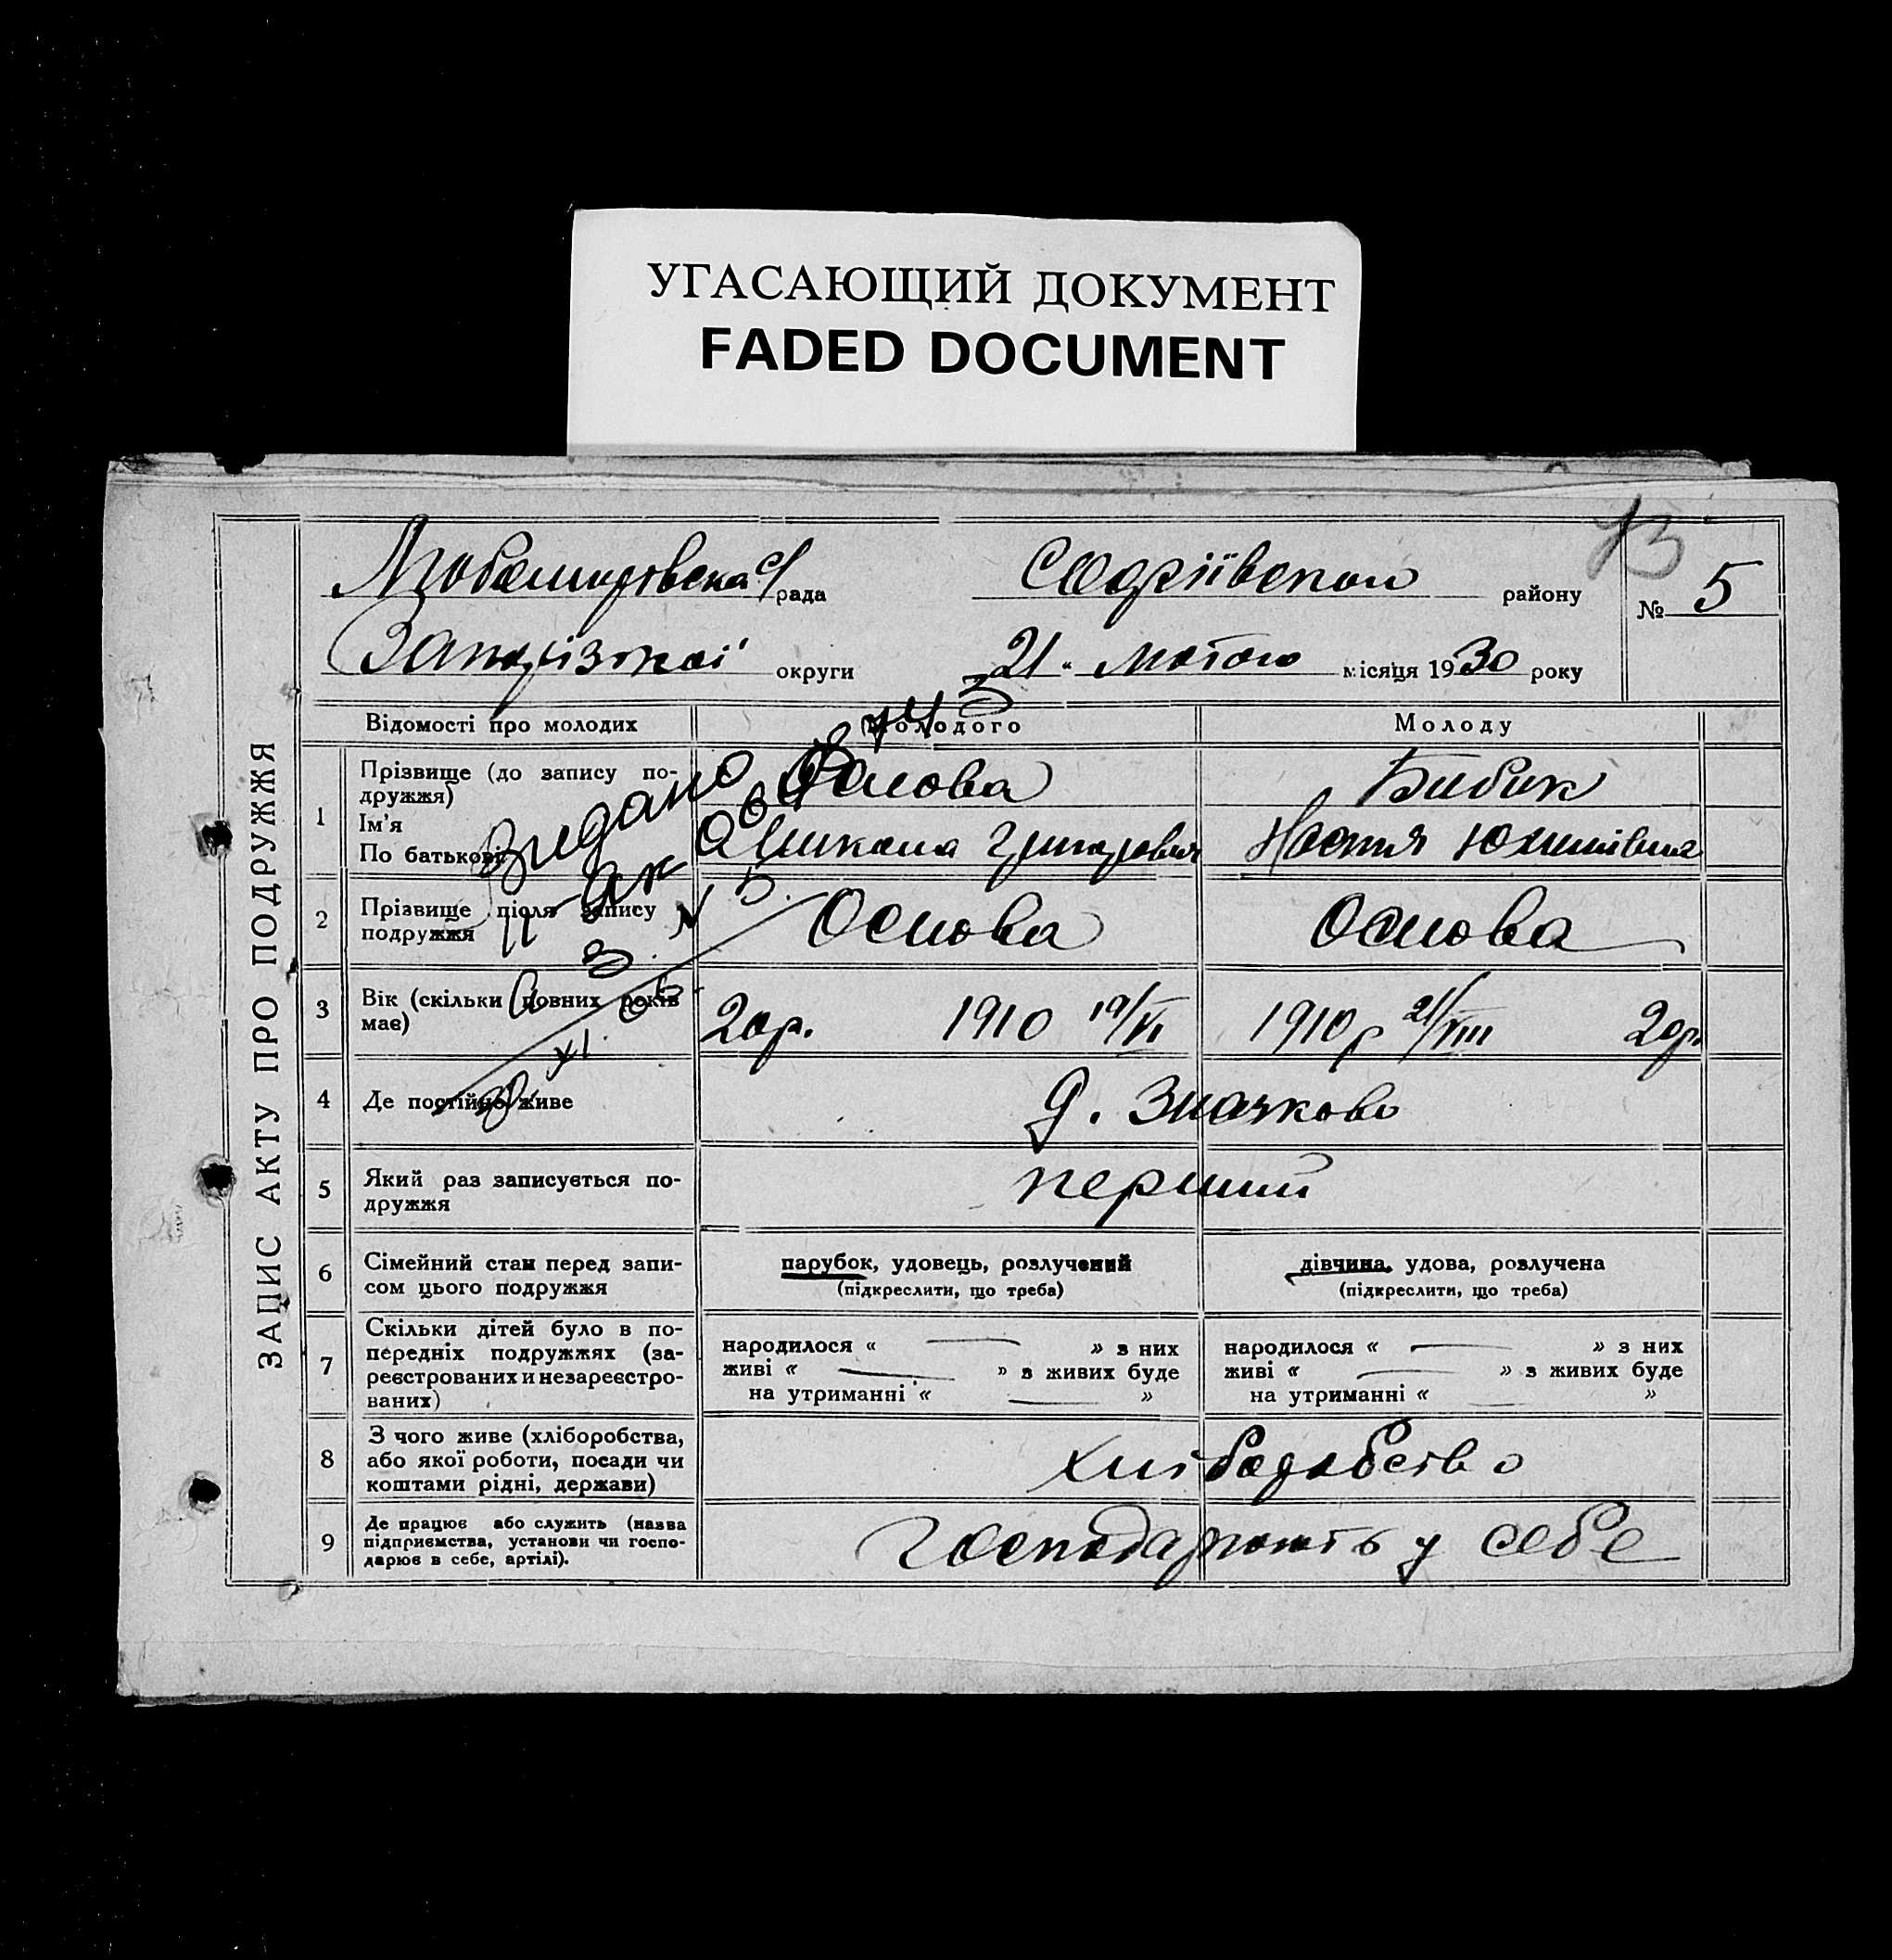 УГАСАЮЩИЙ ДОКУМЕНТ
FADED DOCUMENT
13
ЗАПИС АКТУ ПРО ПОДРУЖЖЯ
с/рада
району
№ 5
округи
21 " лютого місяця 1930 року
Відомості про молодих
Молодого
Молоду
1
Прізвище (до запису по-
дружжя)
Ім'я
По батькові
Основа
Бибик
Григорович
Настя Юхимівна
Видано
2
Прізвище після запису
подружжя
Основа
Основа
3
Вік (скільки повних років
має)
20р. 1910 19/VI
1910р 21/VIII 20р
4
Де постійно живе
д. Значково
5
Який раз записується по-
дружжя
перший
6
Сімейний стан перед запи-
сом цього подружжя
парубок, удовець, розлучений
(підкреслити, що треба)
дівчина, удова, розлучена
(підкреслити, що треба)
7
Скільки дітей було в по-
передніх подружжях (за-
реєстрованих и незареєстро-
ваних)
народилося « — » з них
живі « — » з живих буде
на утриманні « — »
народилося « — » з них
живі « — » з живих буде
на утриманні « — »
8
З чого живе (хліборобства,
або якої роботи, посади чи
коштами рідні, держави)
9
Де працює або служить (назва
підприємства, установи чи госпо-
дарює в себе, артілі).
господарюють у себе